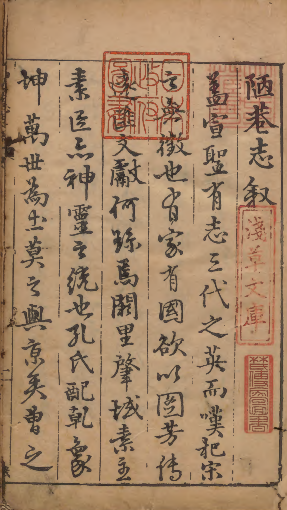 陋巷志叙
蓋宣聖有志三代之英而嘆杞宋
之無徵也有家有國欲以图芳傳
遠匪文獻何繇焉闕里肇域素王
素臣亦神靈之统也孔氏配乾象
坤萬世為土莫之與京矣曾之
淺草文庫